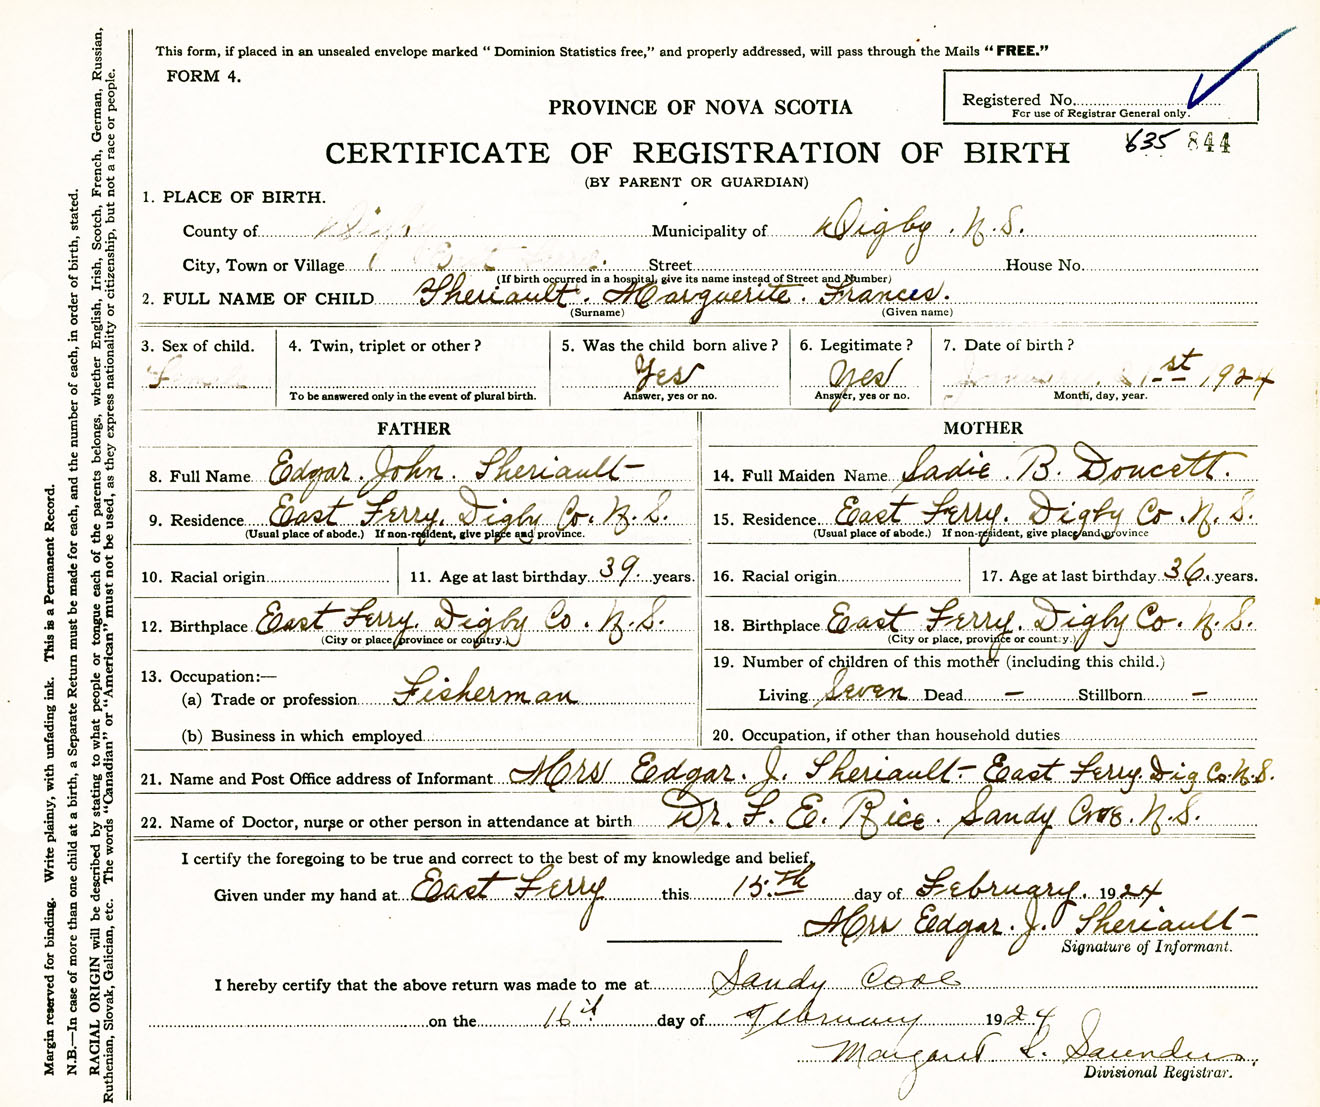 This form, if placed in an unsealed envelope marked "Dominion Statistics free," and properly addressed, will pass through the Mails "FREE."
FORM 4.
Registered No.
For use of Registrar General only.
PROVINCE OF NOVA SCOTIA
635 844
CERTIFICATE OF REGISTRATION OF BIRTH
(BY PARENT OR GUARDIAN)
1. PLACE OF BIRTH.
County of Municipality of Digby. N.S.
City, Town or Village Street House No.
(If birth occurred in a hospital, give its name instead of Street and Number)
2. FULL NAME OF CHILD Theriault. Marguerite. Frances.
(Surname) (Given name)
3. Sex of child. 4. Twin, triplet or other? 5. Was the child born alive? 6. Legitimate? 7. Date of birth?
Female Yes Yes 1st 1924
To be answered only in the event of plural birth. Answer, yes or no. Answer, yes or no. Month, day, year.
FATHER MOTHER
8. Full Name Edgar. John. Theriault 14. Full Maiden Name Sadie. B. Doucett.
9. Residence East Ferry. Digby Co. N.S. 15. Residence East Ferry. Digby Co. N.S.
(Usual place of abode.) If non-resident, give place and province. (Usual place of abode.) If non-resident, give place and province
10. Racial origin 11. Age at last birthday 39 years. 16. Racial origin 17. Age at last birthday 36 years.
12. Birthplace East Ferry. Digby Co. N.S. 18. Birthplace East Ferry. Digby Co. N.S.
(City or place, province or country.) (City or place, province or country.)
13. Occupation:— 19. Number of children of this mother (including this child.)
(a) Trade or profession Fisherman Living Seven Dead — Stillborn —
(b) Business in which employed 20. Occupation, if other than household duties
21. Name and Post Office address of Informant Mrs Edgar. J. Theriault - East Ferry. Dig Co. N.S.
22. Name of Doctor, nurse or other person in attendance at birth Dr. F. E. Rice. Sandy Cove. N.S.
I certify the foregoing to be true and correct to the best of my knowledge and belief.
Given under my hand at East Ferry this 15th day of February. 1924
Mrs Edgar. J. Theriault
Signature of Informant.
I hereby certify that the above return was made to me at Sandy Cove
on the 16th day of February 1924
Margaret L. Saunders
Divisional Registrar.
Margin reserved for binding. Write plainly, with unfading ink. This is a Permanent Record.
N.B.—In case of more than one child at a birth, a Separate Return must be made for each, and the number of each, in order of birth, stated.
RACIAL ORIGIN will be described by stating to what people or tongue each of the parents belongs, whether English, Irish, Scotch, French, German, Russian,
Ruthenian, Slovak, Galician, etc. The words "Canadian" or "American" must not be used, as they express nationality or citizenship, but not a race or people.